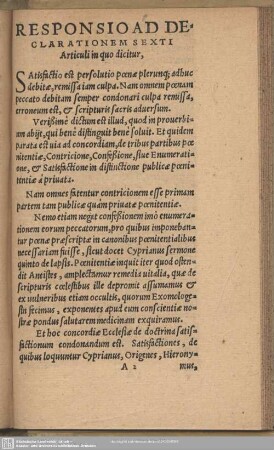 RESPONSIO AD DE-
CLARATIONEM SEXTI
Articuli in quo dicitur,
SAtisfactio est persolutio pœnæ plerunq; adhuc
debitæ, remissa iam culpa. Nam omnem pœnam
peccato debitam semper condonari culpa remissa,
erroneum est, & scripturis sacris aduersum.
Verißimè dictum est illud, quod in prouerbi-
um abijt, qui benè distinguit benè soluit. Et quidem
parata est uia ad concordiam, de tribus partibus pœ
nitentiæ, Contricione, Confeßione, siue Enumeratio-
ne, & Satisfactione in distinctione publicæ pœni
tentiæ à priuata.
Nam omnes fatentur contricionem esse primam
partem tam publicæ quàm priuatæ pœnitentiæ.
Nemo etiam negat confeßionem imò enumera-
tionem eorum peccatorum, pro quibus imponeban-
tur pœnæ præscriptæ in canonibus pœnitentialibus
necessariam fuisse, sicut docet Cyprianus sermone
quinto de lapsis. Pœnitentiæ inquit iter quod osten-
dit Antistes, amplectamur remedia uitalia, quæ de
scripturis cœlestibus ille depromit assumamus &
ex uulneribus etiam occultis, quorum Exomologe-
sin fecimus, exponentes apud eum conscientiæ no-
stræ pondus salutarem medicinam exquiramus.
Et hoc concordiæ Ecclesiæ de doctrina satis-
factionum condonandum est. Satisfactiones, de
quibus loquuntur Cyprianus, Origines, Hierony-
A 2 mus,